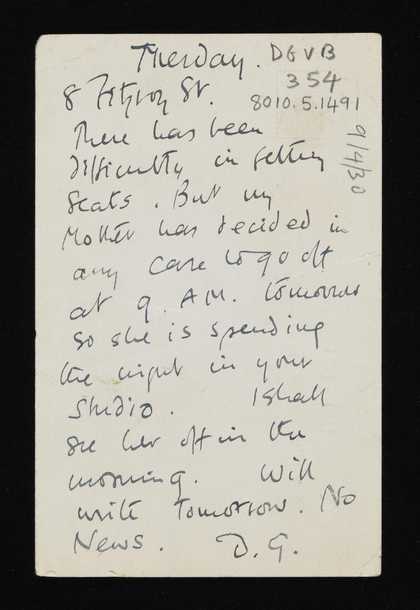 Tuesday. DGVB
354
8 Fitzroy St. 8010.5.1491
There has been
difficulty in getting
seats. But my
Mother has decided in
any case to go off
at 9. A.M. tomorrow
so she is spending
the night in your
Studio. I shall
see her off in the
morning. Will
write tomorrow. No
News. D.G.
9/4/30